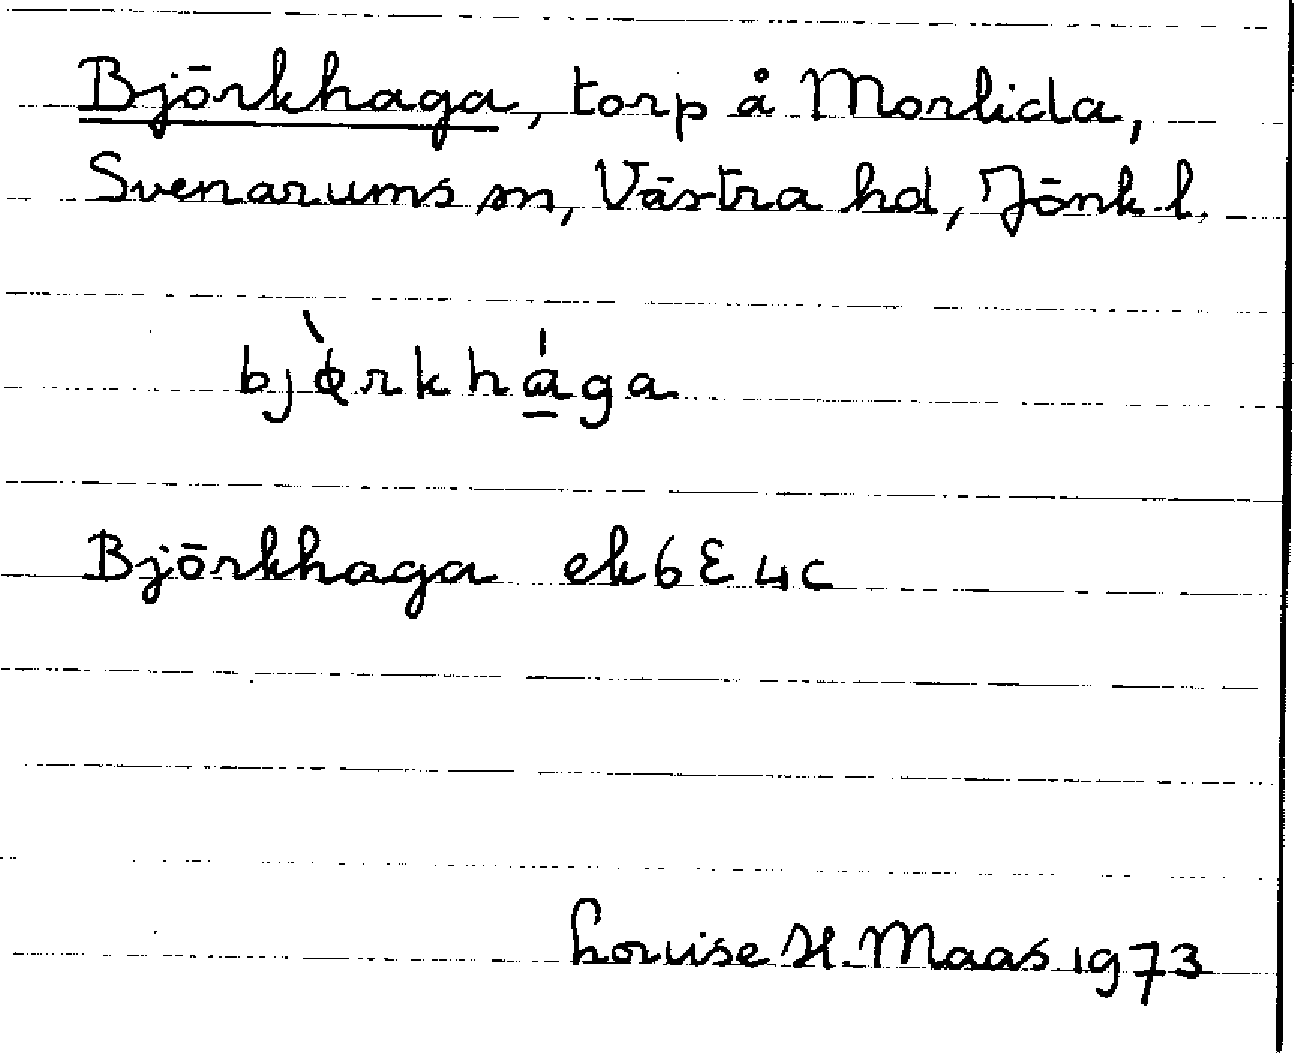 Björkhaga, torp å Morlida,
Svenarums sn, Västra hd, Jönk. l.
bjø̀rkhá̱ga
Björkhaga ek 6E 4c
Louise H. Maas 1973